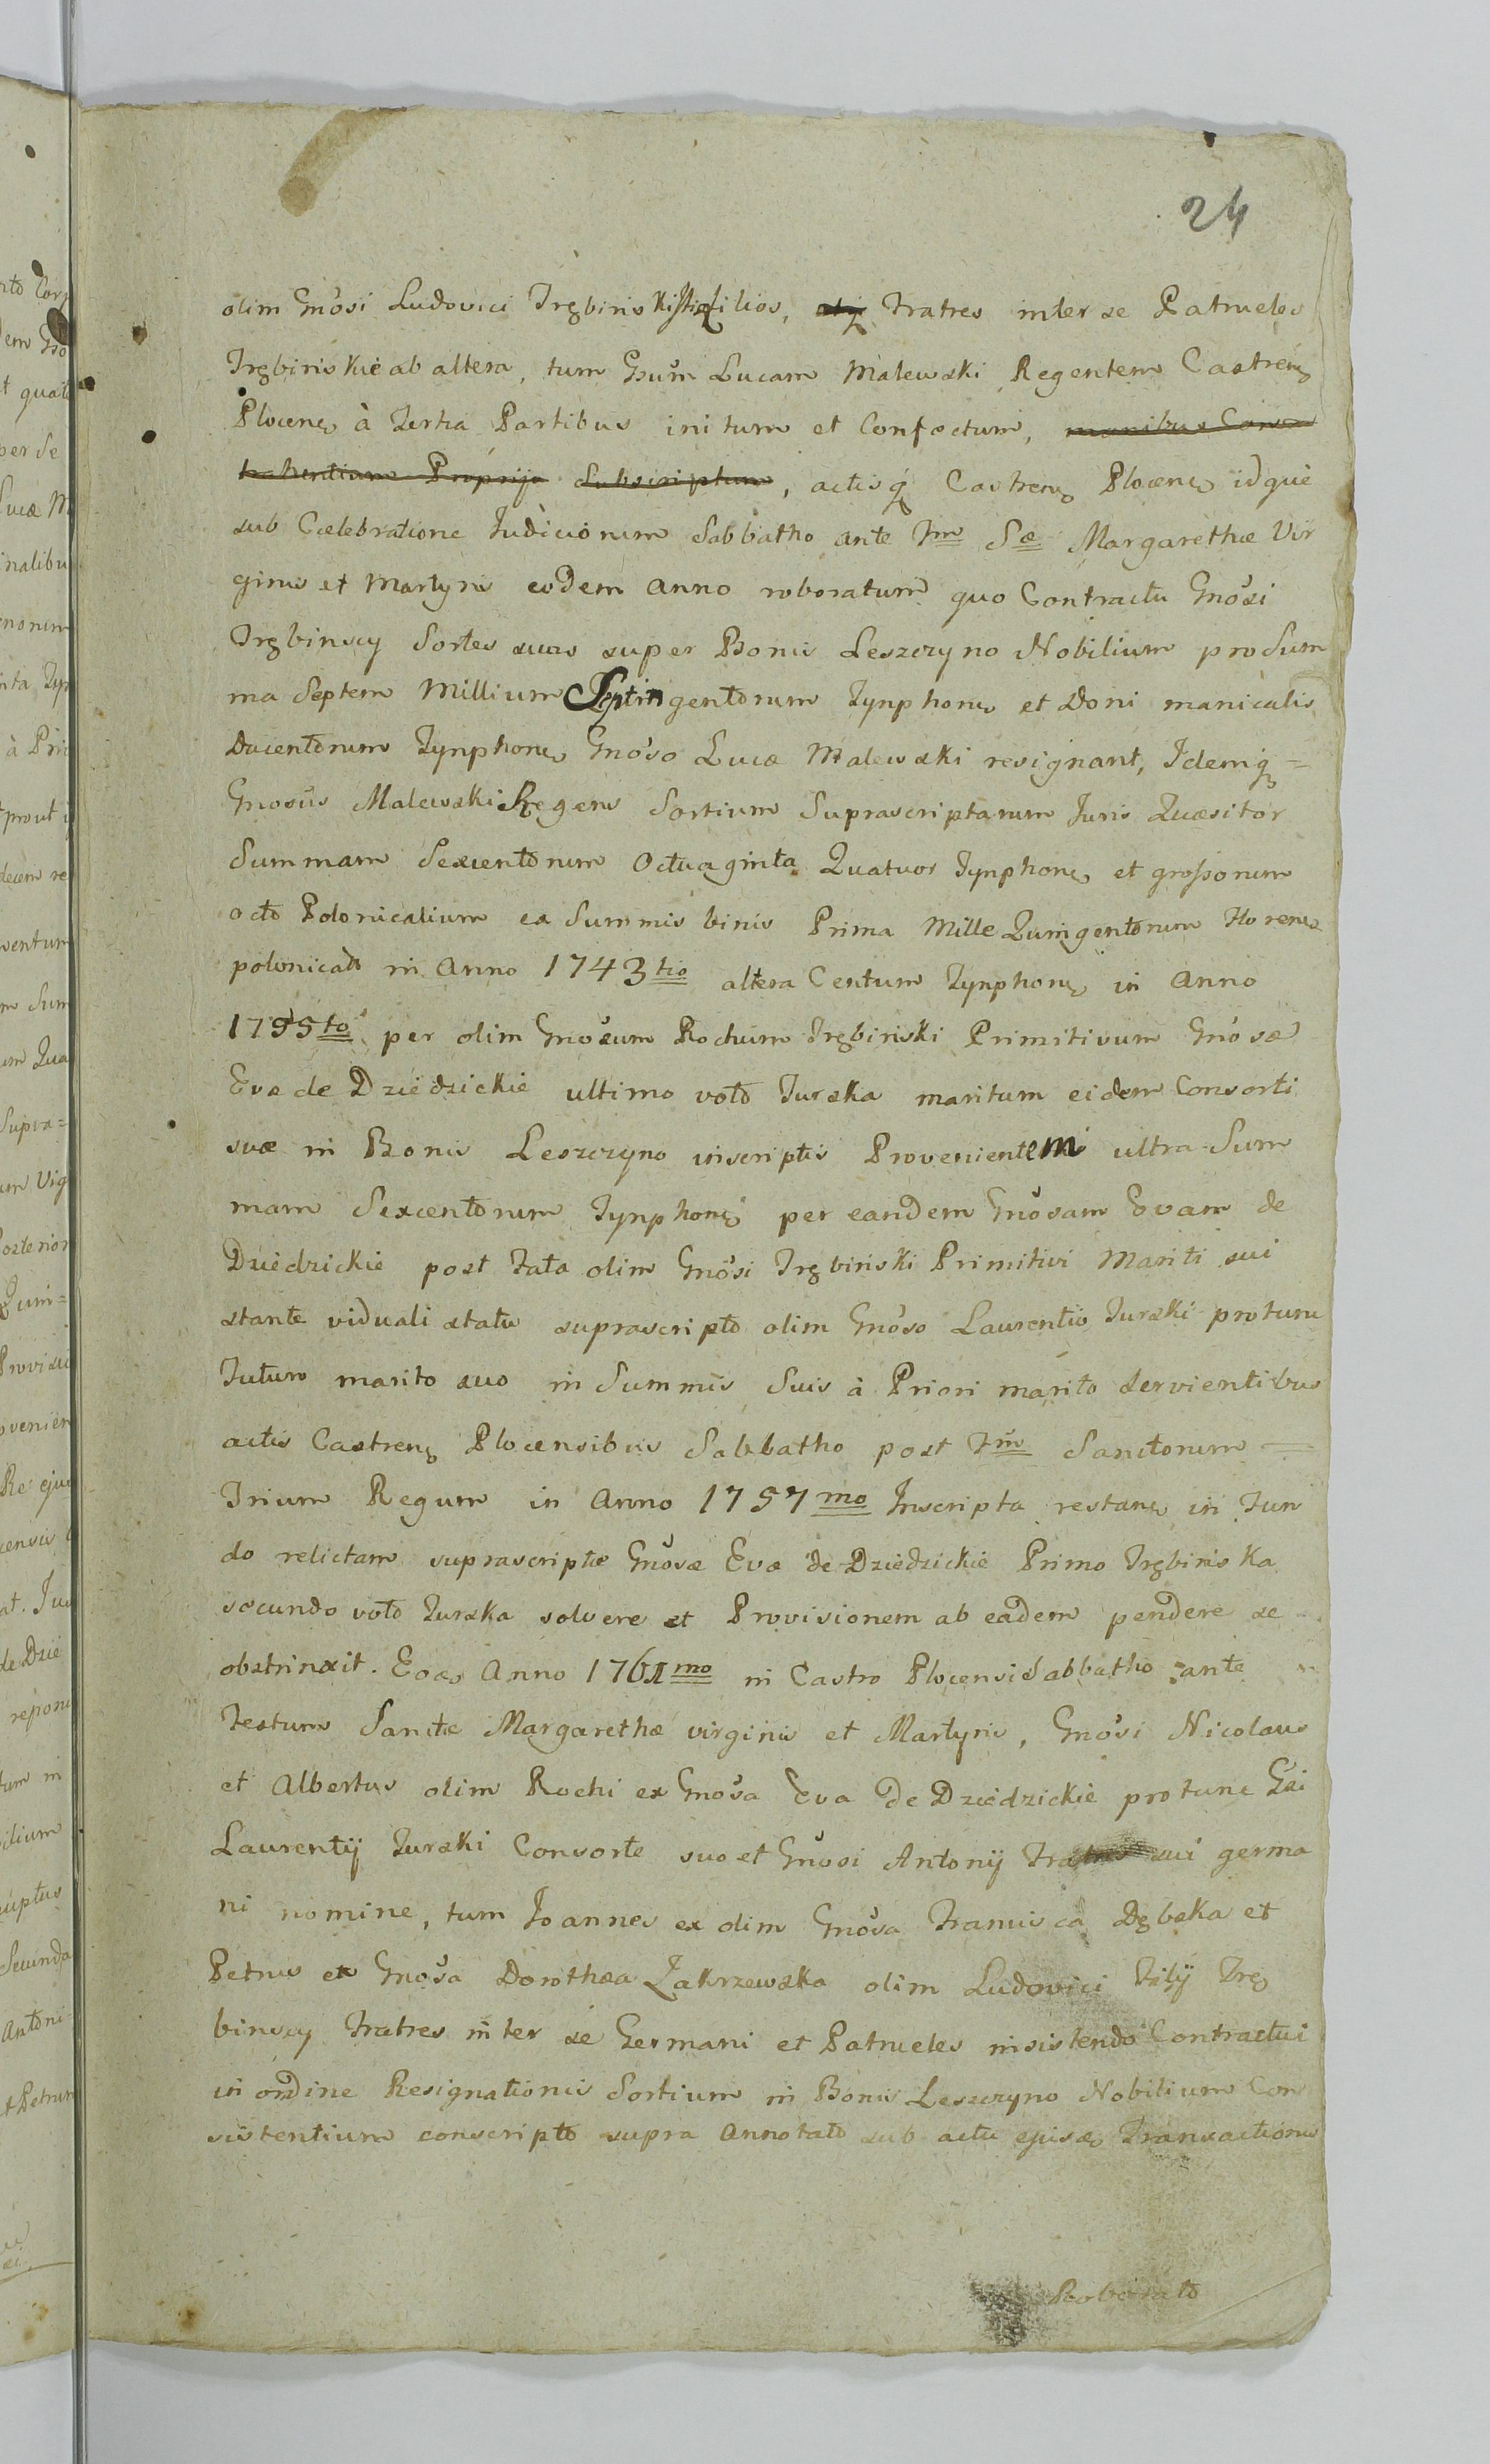 24
olim Gnosi Ludovici Trębiński filios, atq Fratres inter se Patrueles
Trębińskie ab altera, tum Gsum Lucam Malewski Regentem Castren
Plocen à tertia Partibus initum et Confectum, manibus Con
trahentium Proprijs Subscriptum, actisq Castren Plocen idque
sub Cœlebratione Judiciorum Sabbatho ante Fm Sæ Margarethæ Vir
ginis et Martyris eodem Anno roboratum quo Contractu Gnosi
Trębinscy Sortes suas super Bonis Leszczyno Nobilium pro Sum
ma Septem Millium Septingentorum Tynphon et Doni manicalis
Ducentorum Tynphon Gnoso Lucæ Malewski resignant, Idemq =
Gnosus Malewski Regens Sortium Suprascriptarum Juris Quæsitor
Summam Sexcentorum Octuaginta Quatuor Tynphon et grossorum
octo Polonicalium ex Summis binis Prima Mille Quingentorum Floren
polonical in Anno 1743tio altera Centum Tynphon in Anno
1755to per olim Gnosum Rochum Trębiński Primitivum Gnosæ
Evæ de Dziedzickie ultimo voto Turska maritum eidem Consorti
suæ in Bonis Leszczyno inscriptis Provenientem ultra Sum
mam Sexcentorum Tynphon per eandem Gnosam Evam de
Dziedzickie post fata olim Gnosi Trębiński Primitivi Mariti sui
stante viduali statu suprascripto olim Gnoso Laurentio Turski protunc
Futuro marito suo in Summis Suis à Priori marito servientibus
actis Castren Plocensibus Sabbatho post Fm Sanctorum =
Trium Regum in Anno 1757mo Inscripta restan in Fun
do relictam suprascriptæ Gnosæ Evæ de Dziedzickie Primo Trębińska
secundo voto Turska solvere et Provisionem ab eadem pendere se
obstrinxit. Eod Anno 1761mo in Castro Plocensi Sabbatho ante
Festum Sanctæ Margarethæ virginis et Martyris, Gnosi Nicolaus
et Albertus olim Rochi ex Gnosa Eva de Dziedzickie protunc Gsi
Laurentij Turski Consorte suo et Gnosi Antonij Fratris sui germa
ni nomine, tum Joannes ex olim Gnosa Francisca Dębska et
Petrus ex Gnosa Dorothea Zakrzewska olim Ludovici Filij Trę
binscy Fratres inter se Germani et Patrueles insistendo Contractui
in ordine Resignationis Sortium in Bonis Leszczyno Nobilium Con
sistentium conscripto supra Annotato sub actu ejusd Transactionis
Roborato